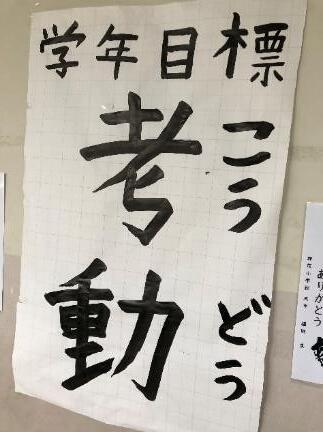 学年目標
考動
こうどう
ありがとう